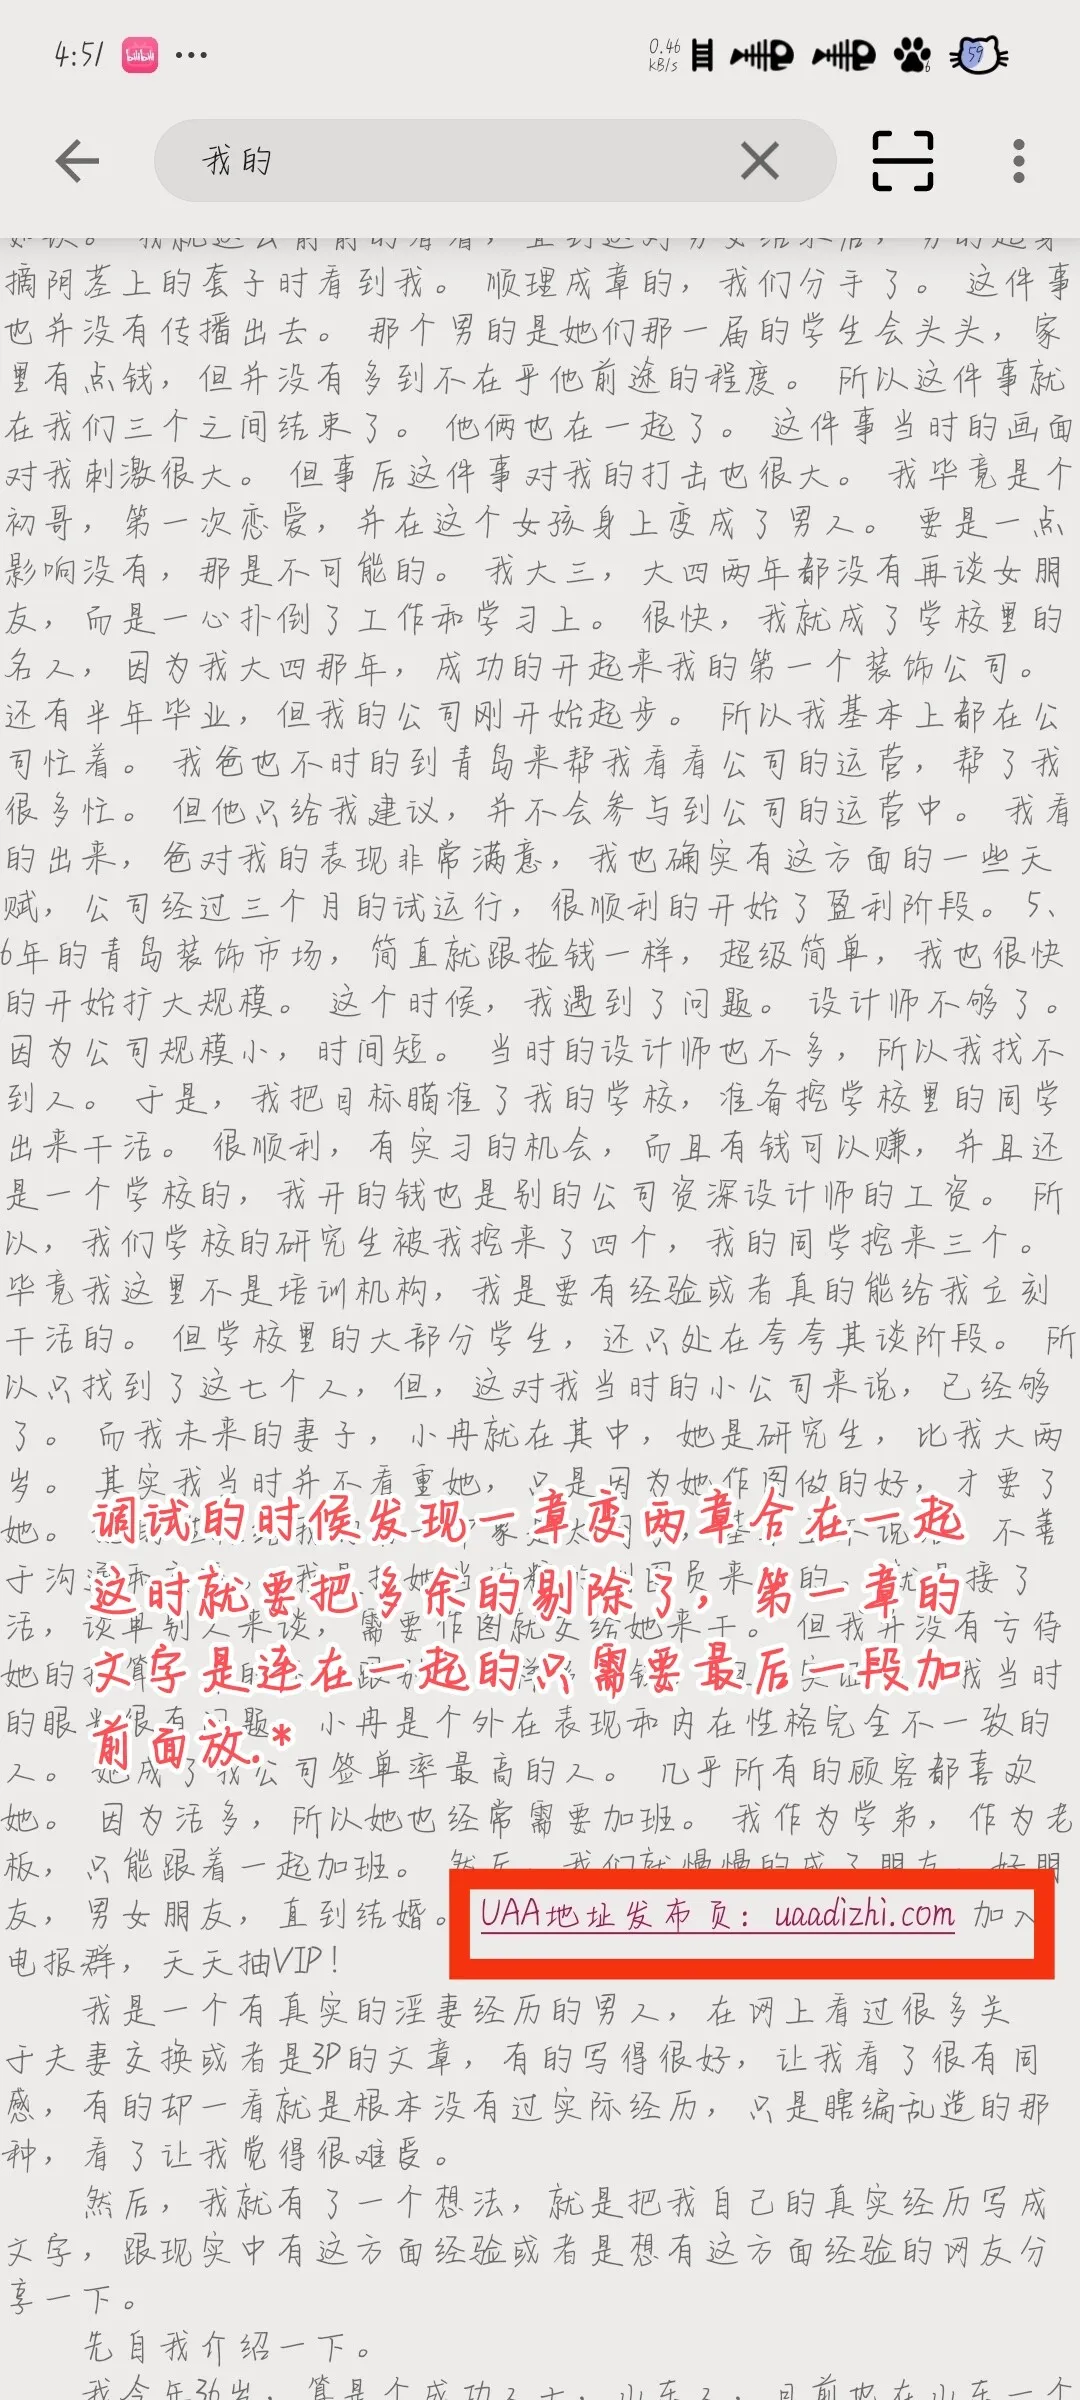 4:51
0.46
kB/s
6
59
我的
摘阴茎上的套子时看到我。 顺理成章的，我们分手了。 这件事
也并没有传播出去。 那个男的是她们那一届的学生会头头，家
里有点钱，但并没有多到不在乎他前途的程度。 所以这件事就
在我们三个之间结束了。 他俩也在一起了。 这件事当时的画面
对我刺激很大。 但事后这件事对我的打击也很大。 我毕竟是个
初哥，第一次恋爱，并在这个女孩身上变成了男人。 要是一点
影响没有，那是不可能的。 我大三，大四两年都没有再谈女朋
友，而是一心扑倒了工作和学习上。 很快，我就成了学校里的
名人，因为我大四那年，成功的开起来我的第一个装饰公司。
还有半年毕业，但我的公司刚开始起步。 所以我基本上都在公
司忙着。 我爸也不时的到青岛来帮我看看公司的运营，帮了我
很多忙。 但他只给我建议，并不会参与到公司的运营中。 我看
的出来，爸对我的表现非常满意，我也确实有这方面的一些天
赋，公司经过三个月的试运行，很顺利的开始了盈利阶段。5、
6年的青岛装饰市场，简直就跟捡钱一样，超级简单，我也很快
的开始扩大规模。 这个时候，我遇到了问题。 设计师不够了。
因为公司规模小，时间短。 当时的设计师也不多，所以我找不
到人。 于是，我把目标瞄准了我的学校，准备挖学校里的同学
出来干活。 很顺利，有实习的机会，而且有钱可以赚，并且还
是一个学校的，我开的钱也是别的公司资深设计师的工资。 所
以，我们学校的研究生被我挖来了四个，我的同学挖来三个。
毕竟我这里不是培训机构，我是要有经验或者真的能给我立刻
干活的。 但学校里的大部分学生，还只处在夸夸其谈阶段。 所
以只找到了这七个人，但，这对我当时的小公司来说，已经够
了。 而我未来的妻子，小冉就在其中，她是研究生，比我大两
岁。 其实我当时并不看重她，只是因为她作图做的好，才要了
她。 不善
调试的时候发现一章变两章合在一起
于沟通 接了
这时就要把多余的剔除了，第一章的
活，谈单别人来谈，需要作图就交给她来干。 但我并没有亏待
她的 我当时
文字是连在一起的只需要最后一段加
的眼光很有问题 小冉是个外在表现和内在性格完全不一致的
前面放.*
人。 她成了我公司签单率最高的人。 几乎所有的顾客都喜欢
她。 因为活多，所以她也经常需要加班。 我作为学弟，作为老
板，只能跟着一起加班。 然后，我们就慢慢的成了朋友，好朋
友，男女朋友，直到结婚。 UAA地址发布页：uaadizhi.com 加入
电报群，天天抽VIP！
我是一个有真实的淫妻经历的男人，在网上看过很多关
于夫妻交换或者是3P的文章，有的写得很好，让我看了很有同
感，有的却一看就是根本没有过实际经历，只是瞎编乱造的那
种，看了让我觉得很难受。
然后，我就有了一个想法，就是把我自己的真实经历写成
文字，跟现实中有这方面经验或者是想有这方面经验的网友分
享一下。
先自我介绍一下。